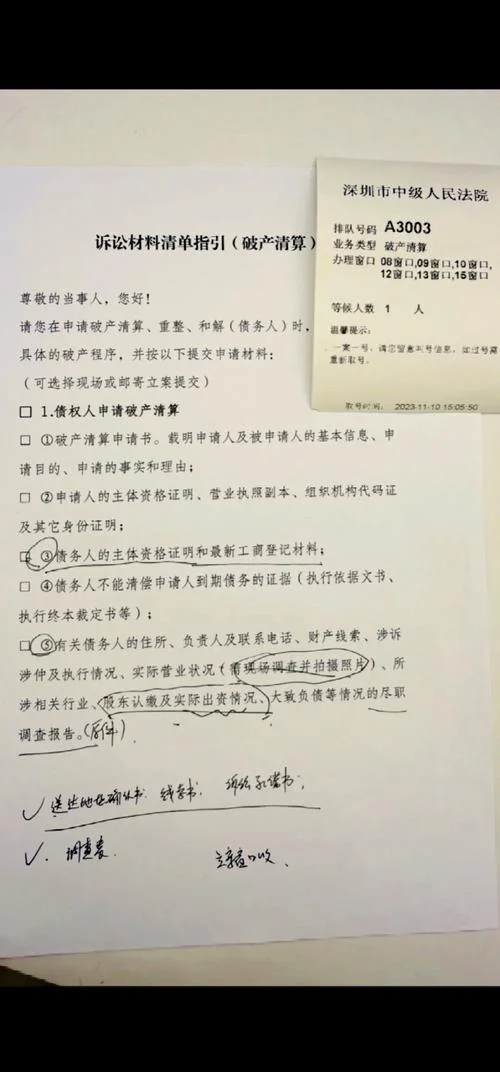 诉讼材料清单指引（破产清算）
尊敬的当事人，您好！
请您在申请破产清算、重整、和解（债务人）时，
具体的破产程序，并按以下提交申请材料：
（可选择现场或邮寄立案提交）
□ 1.债权人申请破产清算
□ ①破产清算申请书。载明申请人及被申请人的基本信息、申
请目的、申请的事实和理由；
□ ②申请人的主体资格证明、营业执照副本、组织机构代码证
及其它身份证明；
□ ③债务人的主体资格证明和最新工商登记材料；
□ ④债务人不能清偿申请人到期债务的证据（执行依据文书、
执行终本裁定书等）；
□ ⑤有关债务人的住所、负责人及联系电话、财产线索、涉诉
涉仲及执行情况、实际营业状况（需现场调查并拍摄照片）、所
涉相关行业、股东认缴及实际出资情况、大致负债等情况的尽职
调查报告。（原件）
✓送达地址确认书、
✓. 调查表.
深圳市中级人民法院
排队号码 A3003
业务类型 破产清算
办理窗口 08窗口,09窗口,10窗口,
12窗口,13窗口,15窗口
等候人数 1 人
温馨提示：
一案一号，请您留意叫号信息，如过号需
重新取号。
取号时间： 2023-11-10 15:05:50